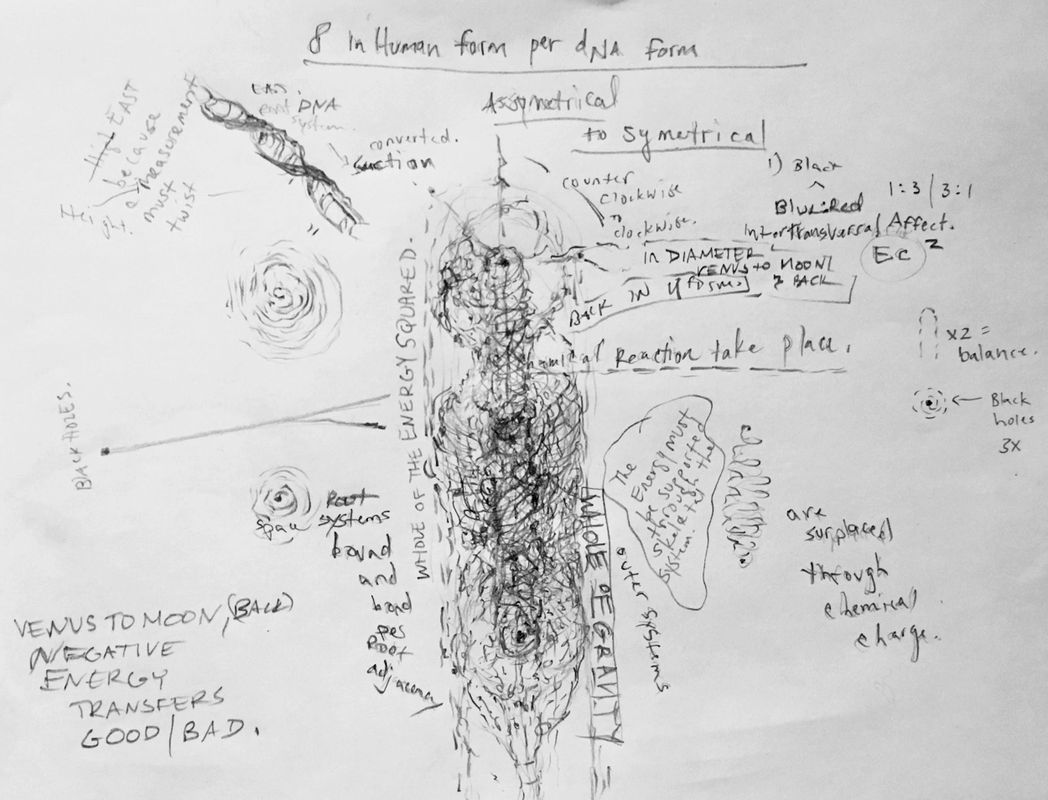 8 in Human form per dNA form
Assymetrical
to Symetrical
EAS.
DNA
system.
converted.
Suction
EAST
because
measurement
must
twist
counter
clockwise
to
clockwise.
1) Black
^
Blue:Red
1:3 | 3:1
Affect.
Ec²
IN DIAMETER
VENUS TO MOON/
& BACK
BACK IN
Reaction take place.
x2 =
balance.
Black
holes
3X
BACK HOLES.
WHOLE OF THE ENERGY SQUARED.
WHOLE OF GRAVITY
outer systems
The
Energy must
be supported
through the
skeletal
system
are
surplaced
through
chemical
charge.
Root
space systems
bound
and
bond
per
Root
adjacency
VENUS TO MOON, (BACK)
NEGATIVE
ENERGY
TRANSFERS
GOOD/BAD.